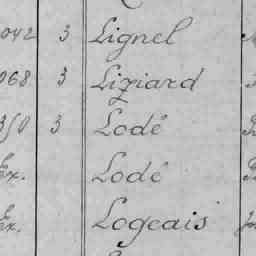 042 3 Lignel
068 3 Liziard
350 3 Lodé
Ex. Lodé
Ex. Logeais